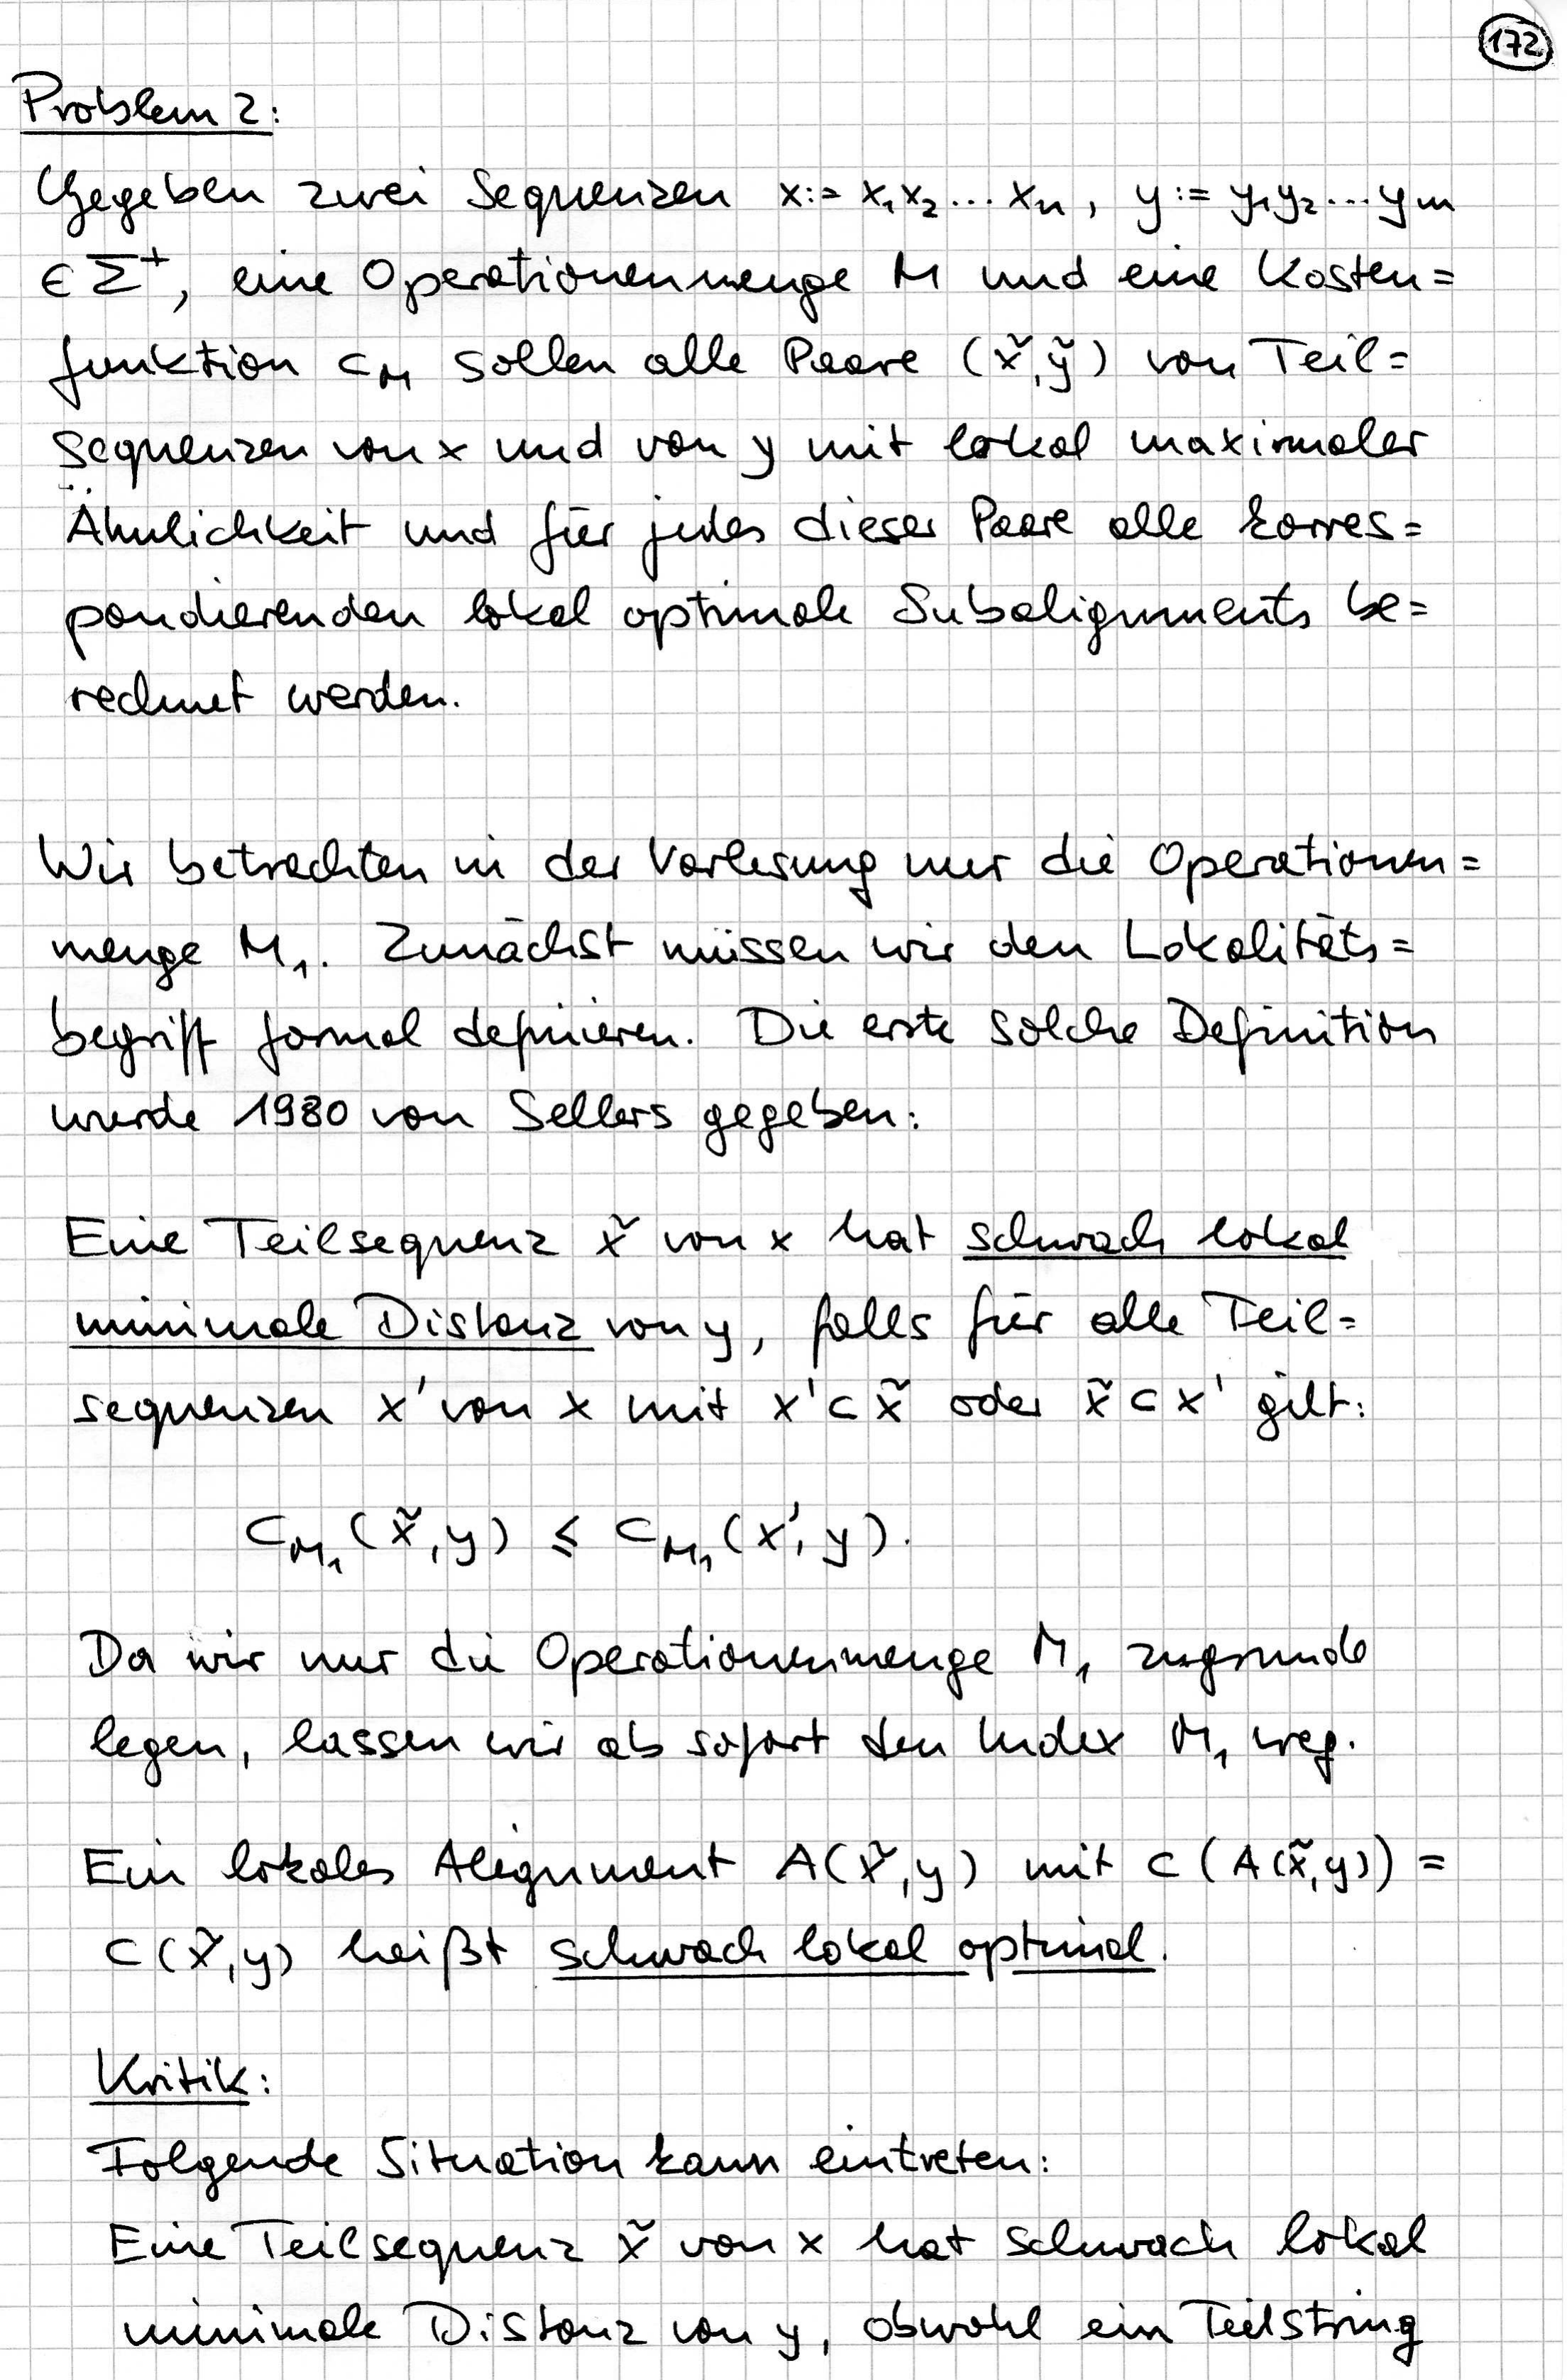 172
Problem 2:
Gegeben zwei Sequenzen x := x₁x₂...xₙ, y := y₁y₂...yₘ
∈ Σ⁺, eine Operationenmenge M und eine Kosten=
funktion c_M sollen alle Paare (x̃,ỹ) von Teil=
sequenzen von x und von y mit lokal maximaler
Ähnlichkeit und für jedes dieser Paare alle korres=
pondierenden lokal optimale Subalignments be=
rechnet werden.
Wir betrachten in der Vorlesung nur die Operationen=
menge M₁. Zunächst müssen wir den Lokalitäts=
begriff formal definieren. Die erste solche Definition
wurde 1980 von Sellers gegeben:
Eine Teilsequenz x̃ von x hat schwach lokal
minimale Distanz von y, falls für alle Teil=
sequenzen x' von x mit x' ⊂ x̃ oder x̃ ⊂ x' gilt:
c_M₁(x̃,y) ≤ c_M₁(x',y).
Da wir nur die Operationenmenge M₁ zugrunde
legen, lassen wir ab sofort den Index M₁ weg.
Ein lokales Alignment A(x̃,y) mit c(A(x̃,y)) =
c(x̃,y) heißt schwach lokal optimal.
Kritik:
Folgende Situation kann eintreten:
Eine Teilsequenz x̃ von x hat schwach lokal
minimale Distanz von y, obwohl ein Teilstring